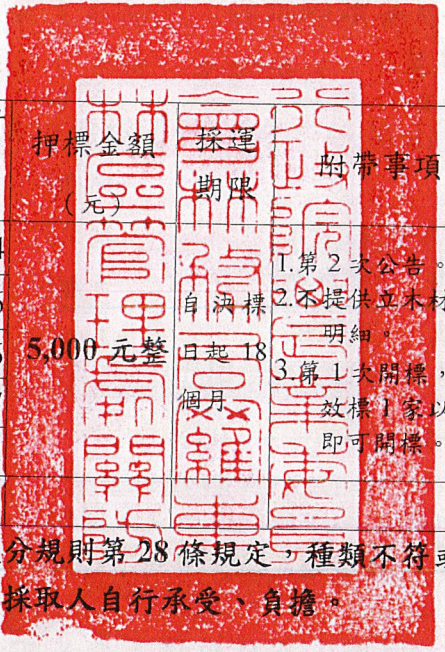 押標金額
(元)
採運
期限
附帶事項
5,000 元整
自決標
日起 18
個月
1.第 2 次公告。
2.不提供立木材
明細。
3.第 1 次開標，
效標 1 家以
即可開標。
分規則第 28 條規定，種類不符或
採取人自行承受、負擔。
行政院農業委員
會林務局羅東
林區管理處關防